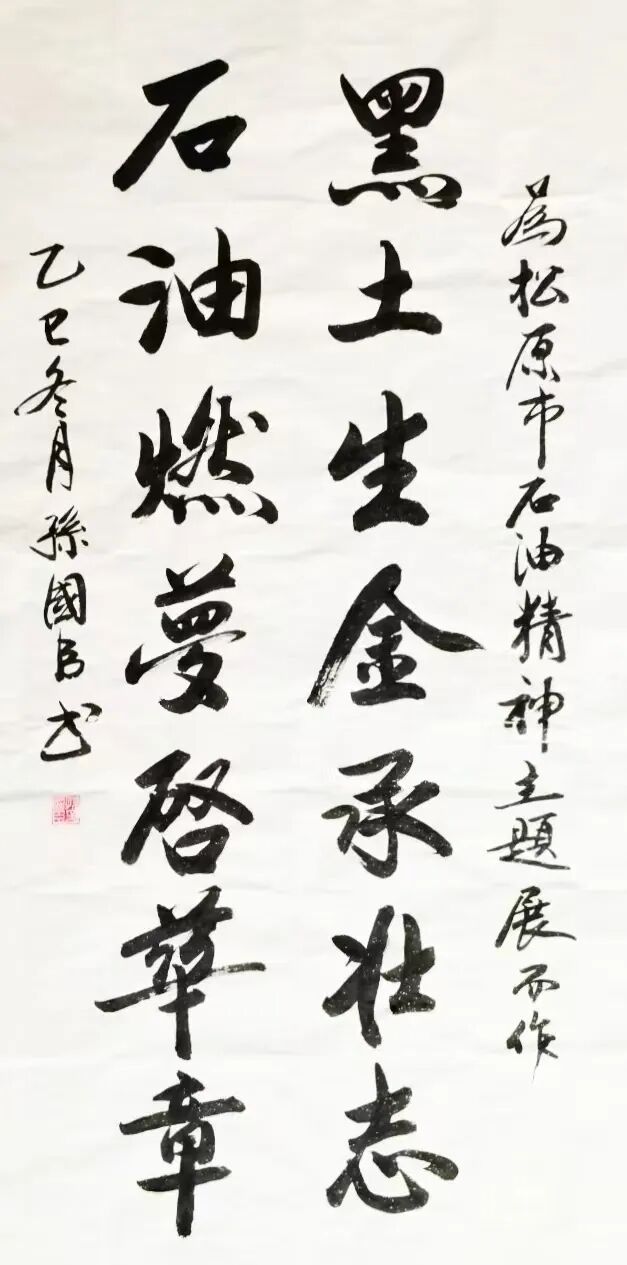 為松原市石油精神主題展而作
黑土生金承壯志
石油燃夢啓華章
乙巳冬月孫國書